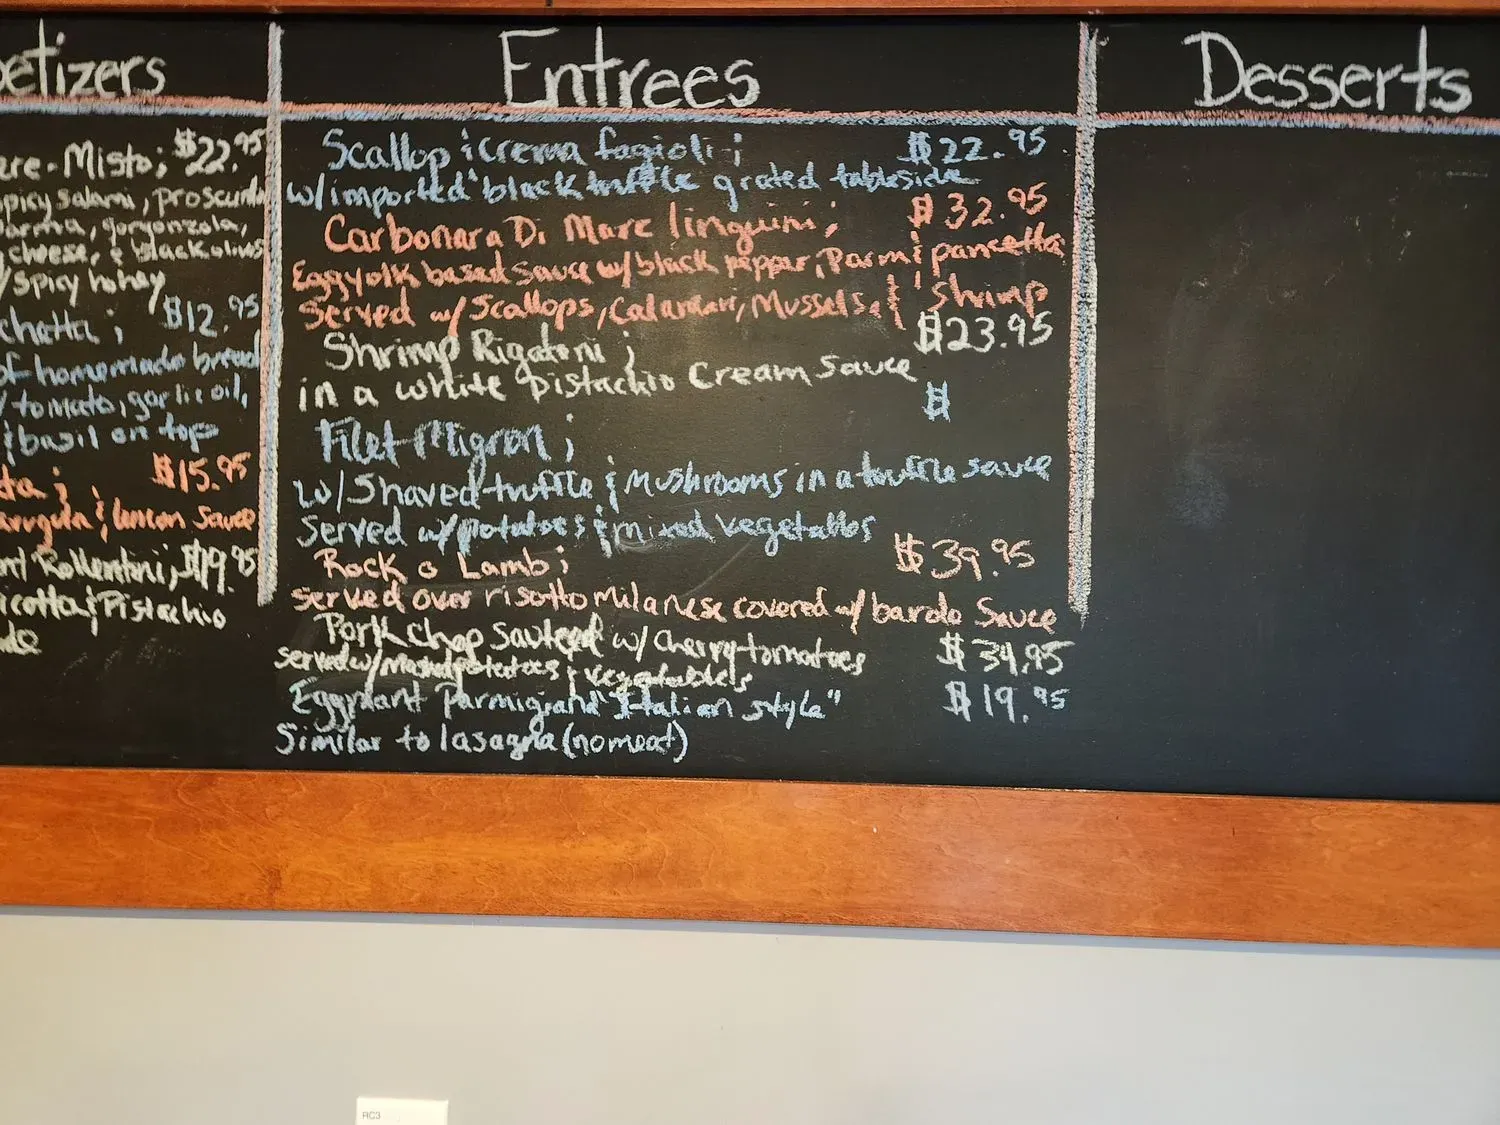 etizers
ere-Misto; $22.95
spicy salami, proscuitto
arma, gorgonzola,
cheese, & black olives
w/ spicy honey
chetta; $12.95
of homemade bread
w/ tomato, garlic oil,
& basil on top
ta; $15.95
arugula & lemon sauce
nt Rollentini; $19.95
icotta & Pistachio
Entrees
Scallop & crema fagioli; $22.95
w/ imported black truffle grated tableside
Carbonara Di Mare linguini; $32.95
Eggyolk based sauce w/ black pepper, Parm & pancetta
Served w/ Scallops, Calamari, Mussels, & shrimp
Shrimp Rigatoni; $23.95
in a white Pistachio Cream Sauce
Filet Mignon; $
w/ Shaved truffle & Mushrooms in a truffle sauce
Served w/ potatoes & mixed vegetables
Rack o Lamb; $39.95
served over risotto Milanese covered w/ barolo Sauce
Pork Chop Sauteed w/ Cherry tomatoes $34.95
served w/ Mashed potatoes & vegetables
Eggplant Parmigiana "Italian style" $19.95
Similar to lasagna (no meat)
Desserts
RC3